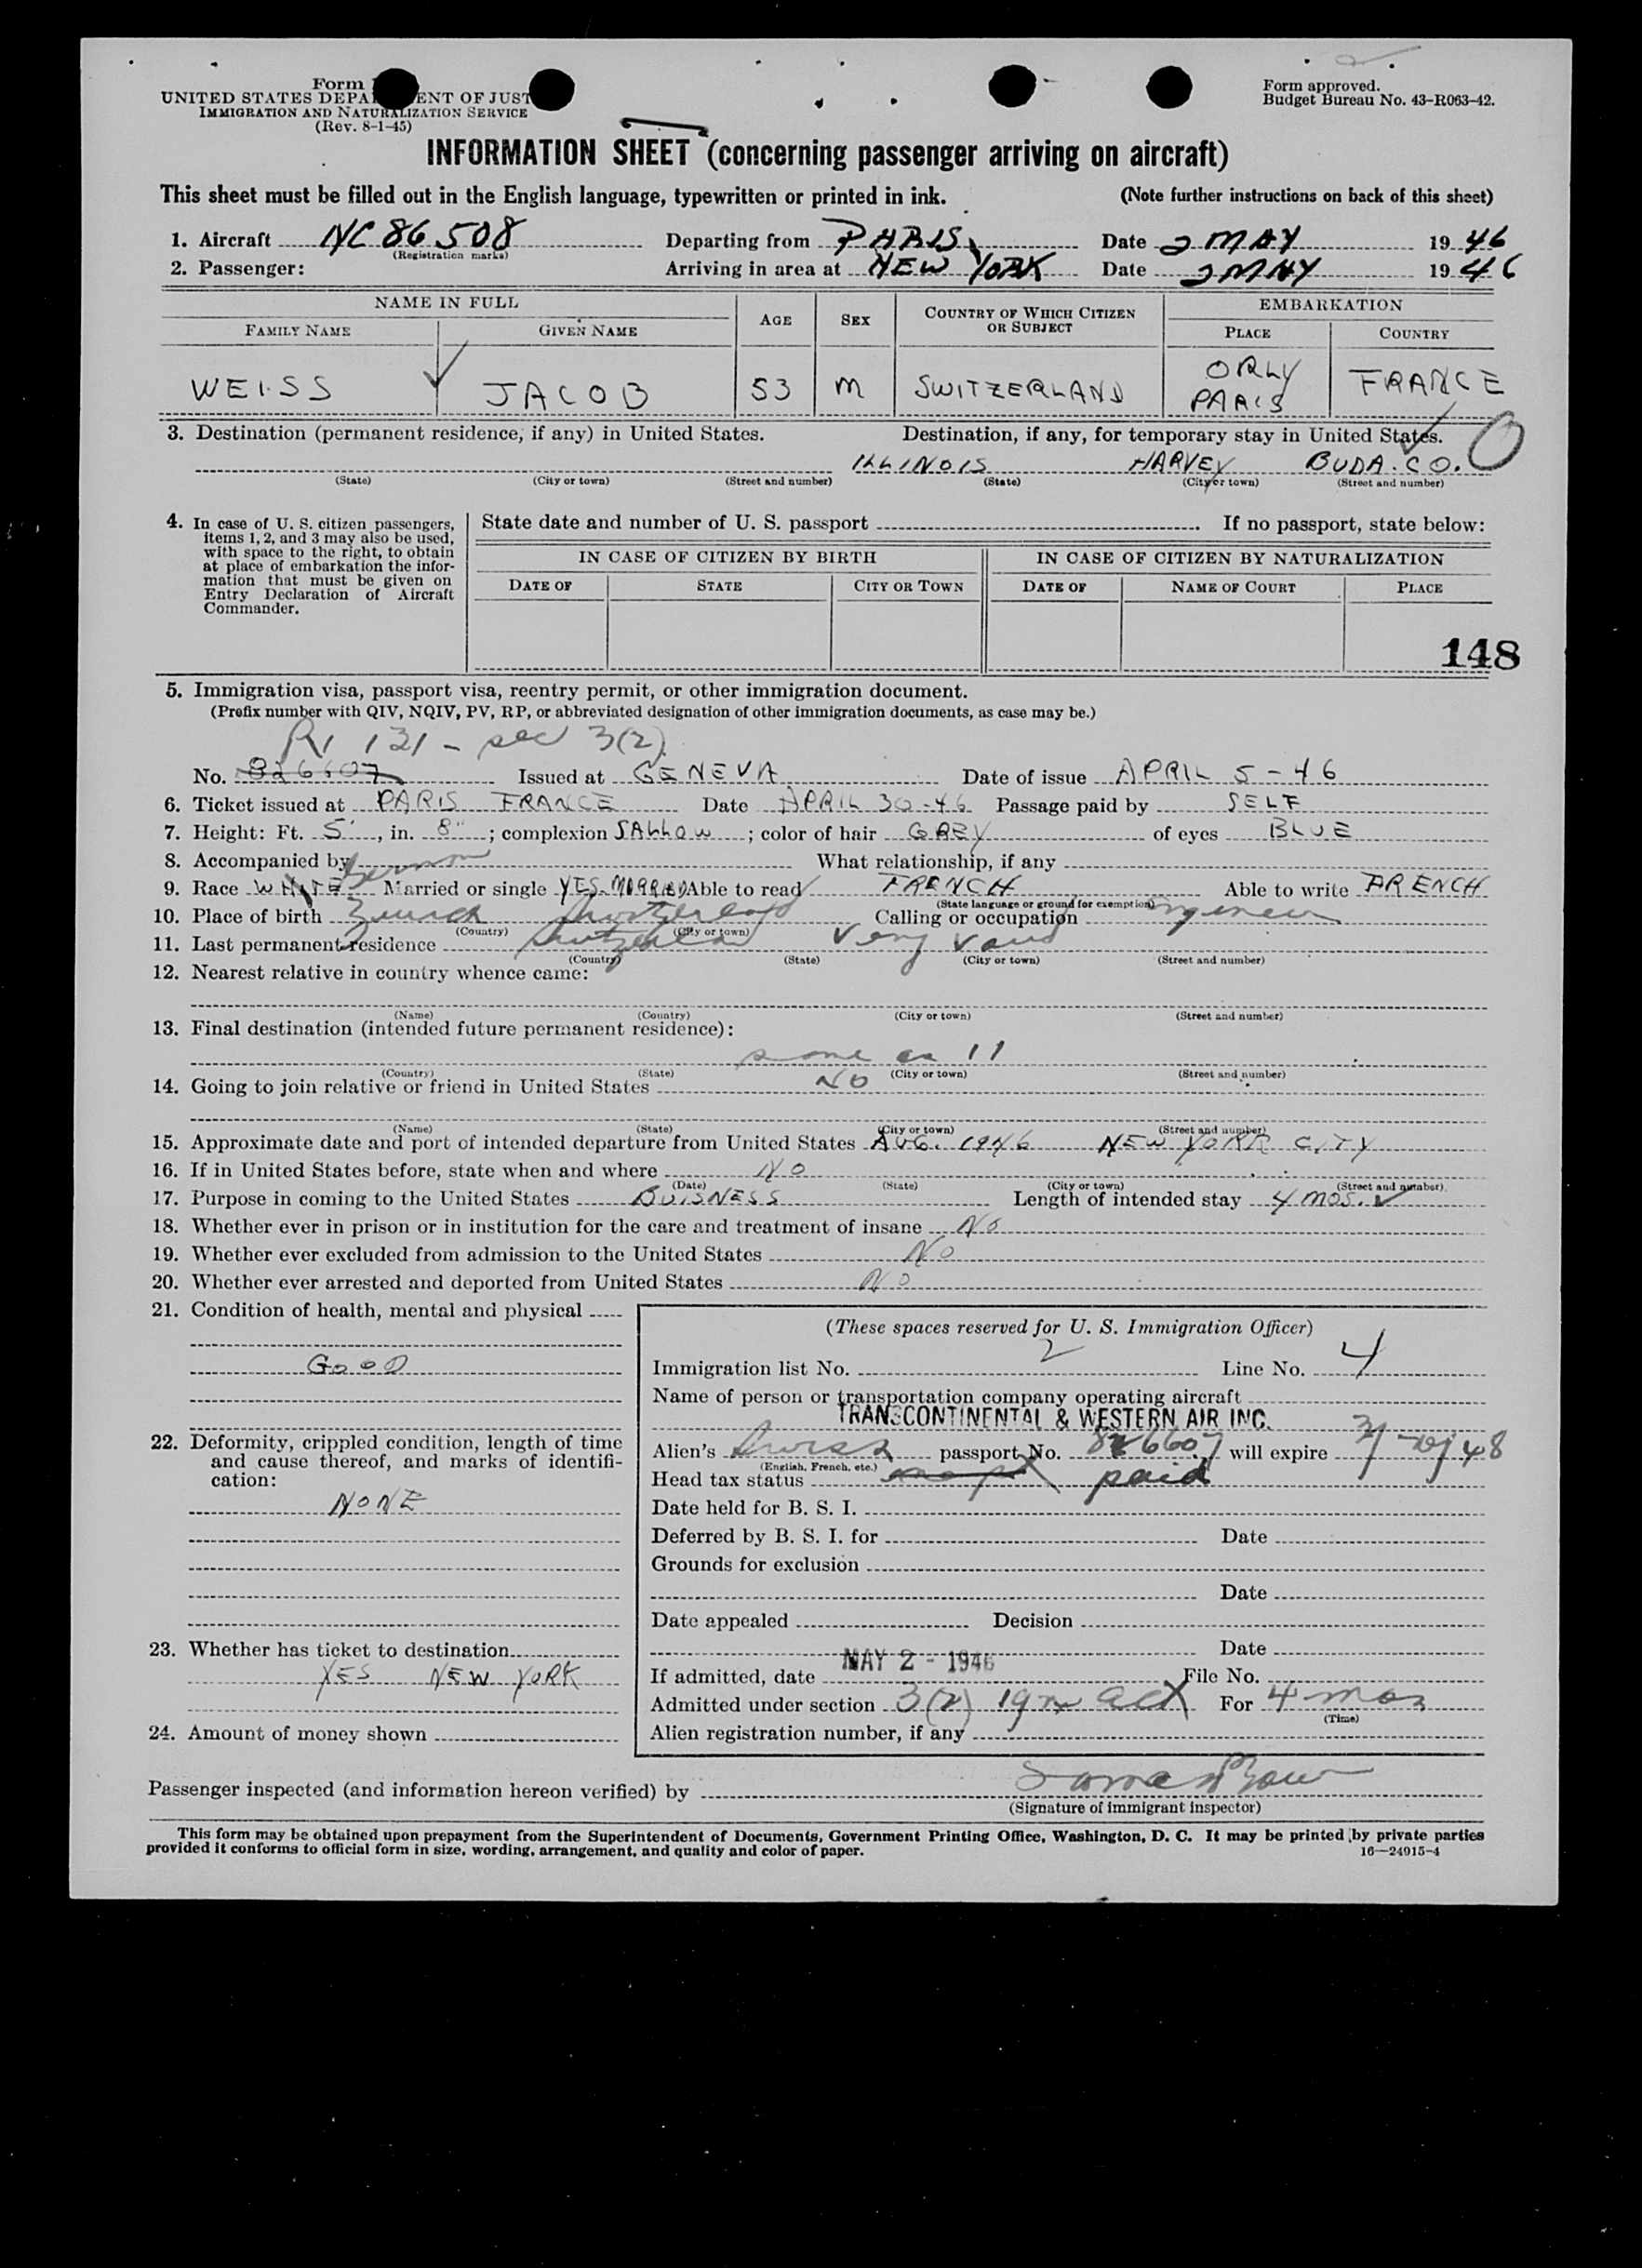 Form
UNITED STATES DEPA ENT OF JUST
IMMIGRATION AND NATURALIZATION SERVICE
(Rev. 8-1-45)
Form approved.
Budget Bureau No. 43-R063-42.
INFORMATION SHEET (concerning passenger arriving on aircraft)
This sheet must be filled out in the English language, typewritten or printed in ink. (Note further instructions on back of this sheet)
1. Aircraft NC 86508 Departing from PARIS, Date 2 MAY 1946
(Registration marks)
2. Passenger: Arriving in area at NEW YORK Date 2 MAY 1946
NAME IN FULL AGE SEX COUNTRY OF WHICH CITIZEN OR SUBJECT EMBARKATION
FAMILY NAME GIVEN NAME PLACE COUNTRY
WEISS JACOB 53 M SWITZERLAND ORLY PARIS FRANCE
3. Destination (permanent residence, if any) in United States. Destination, if any, for temporary stay in United States.
ILLINOIS HARVEY BUDA. CO.
(State) (City or town) (Street and number) (State) (City or town) (Street and number)
4. In case of U. S. citizen passengers, items 1, 2, and 3 may also be used, with space to the right, to obtain at place of embarkation the information that must be given on Entry Declaration of Aircraft Commander.
State date and number of U. S. passport If no passport, state below:
IN CASE OF CITIZEN BY BIRTH IN CASE OF CITIZEN BY NATURALIZATION
DATE OF STATE CITY OR TOWN DATE OF NAME OF COURT PLACE
148
5. Immigration visa, passport visa, reentry permit, or other immigration document.
(Prefix number with QIV, NQIV, PV, RP, or abbreviated designation of other immigration documents, as case may be.)
131 - sec 3(2)
No. 826607 Issued at GENEVA Date of issue APRIL 5-46
6. Ticket issued at PARIS FRANCE Date APRIL 30-46 Passage paid by SELF
7. Height: Ft. 5', in. 8"; complexion SALLOW; color of hair GREY of eyes BLUE
8. Accompanied by What relationship, if any
9. Race WHITE German Married or single YES. MARRIED Able to read FRENCH Able to write FRENCH
(State language or ground for exemption)
10. Place of birth Zurich Switzerland Calling or occupation Engineer
(Country) (City or town)
11. Last permanent residence Switzerland Vevy Vaud
(Country) (State) (City or town) (Street and number)
12. Nearest relative in country whence came:
(Name) (Country) (City or town) (Street and number)
13. Final destination (intended future permanent residence):
same as 11
(Country) (State) (City or town) (Street and number)
14. Going to join relative or friend in United States NO
(Name) (State) (City or town) (Street and number)
15. Approximate date and port of intended departure from United States AUG. 1946 NEW YORK CITY
16. If in United States before, state when and where NO
(Date) (State) (City or town) (Street and number)
17. Purpose in coming to the United States BUISNESS Length of intended stay 4 MOS.
18. Whether ever in prison or in institution for the care and treatment of insane NO
19. Whether ever excluded from admission to the United States NO
20. Whether ever arrested and deported from United States NO
21. Condition of health, mental and physical
GOOD
22. Deformity, crippled condition, length of time and cause thereof, and marks of identification:
NONE
23. Whether has ticket to destination
YES NEW YORK
24. Amount of money shown
(These spaces reserved for U. S. Immigration Officer)
Immigration list No. 2 Line No. 4
Name of person or transportation company operating aircraft
TRANSCONTINENTAL & WESTERN AIR INC.
Alien's Swiss passport No. 826607 will expire 48
(English, French, etc.)
Head tax status paid
Date held for B. S. I.
Deferred by B. S. I. for Date
Grounds for exclusion
Date
Date appealed Decision
Date
If admitted, date MAY 2 - 1946 File No.
Admitted under section 3(2) Igm act For 4 mos
(Time)
Alien registration number, if any
Passenger inspected (and information hereon verified) by
(Signature of immigrant inspector)
This form may be obtained upon prepayment from the Superintendent of Documents, Government Printing Office, Washington, D. C. It may be printed by private parties
provided it conforms to official form in size, wording, arrangement, and quality and color of paper. 16—24915-4